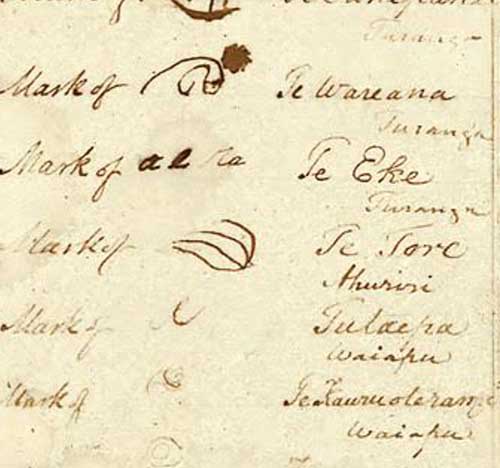 Turanga
Mark of Te Wareana
Turanga
Mark of Te Eke
Turanga
Mark of Te Tore
Ahuriri
Mark of Tutaepa
Waiapu
Mark of
Waiapu